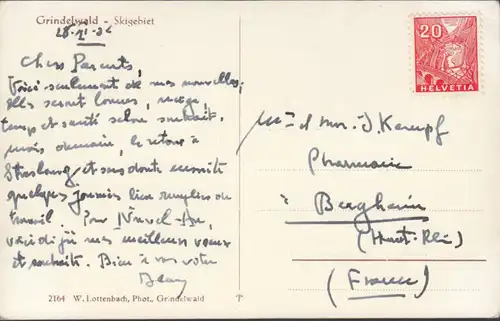 Grindelwald - Skigebiet
Chers Parents,
Voici seulement de mes nouvelles,
elles seront bonnes, neige,
temps et santé selon souhait.
mais demain, le retour à
Strasbourg et sans doute ensuite
quelques journées bien remplies de
travail. Pour Nouvel-An,
voici déjà mes meilleurs voeux
et souhaits. Bien à vous votre
2164 W. Lottenbach, Phot., Grindelwald
20
HELVETIA
Mme et Mr. J. Kempf
Pharmacie
à Bergheim
(Haut-Rhin)
(France)